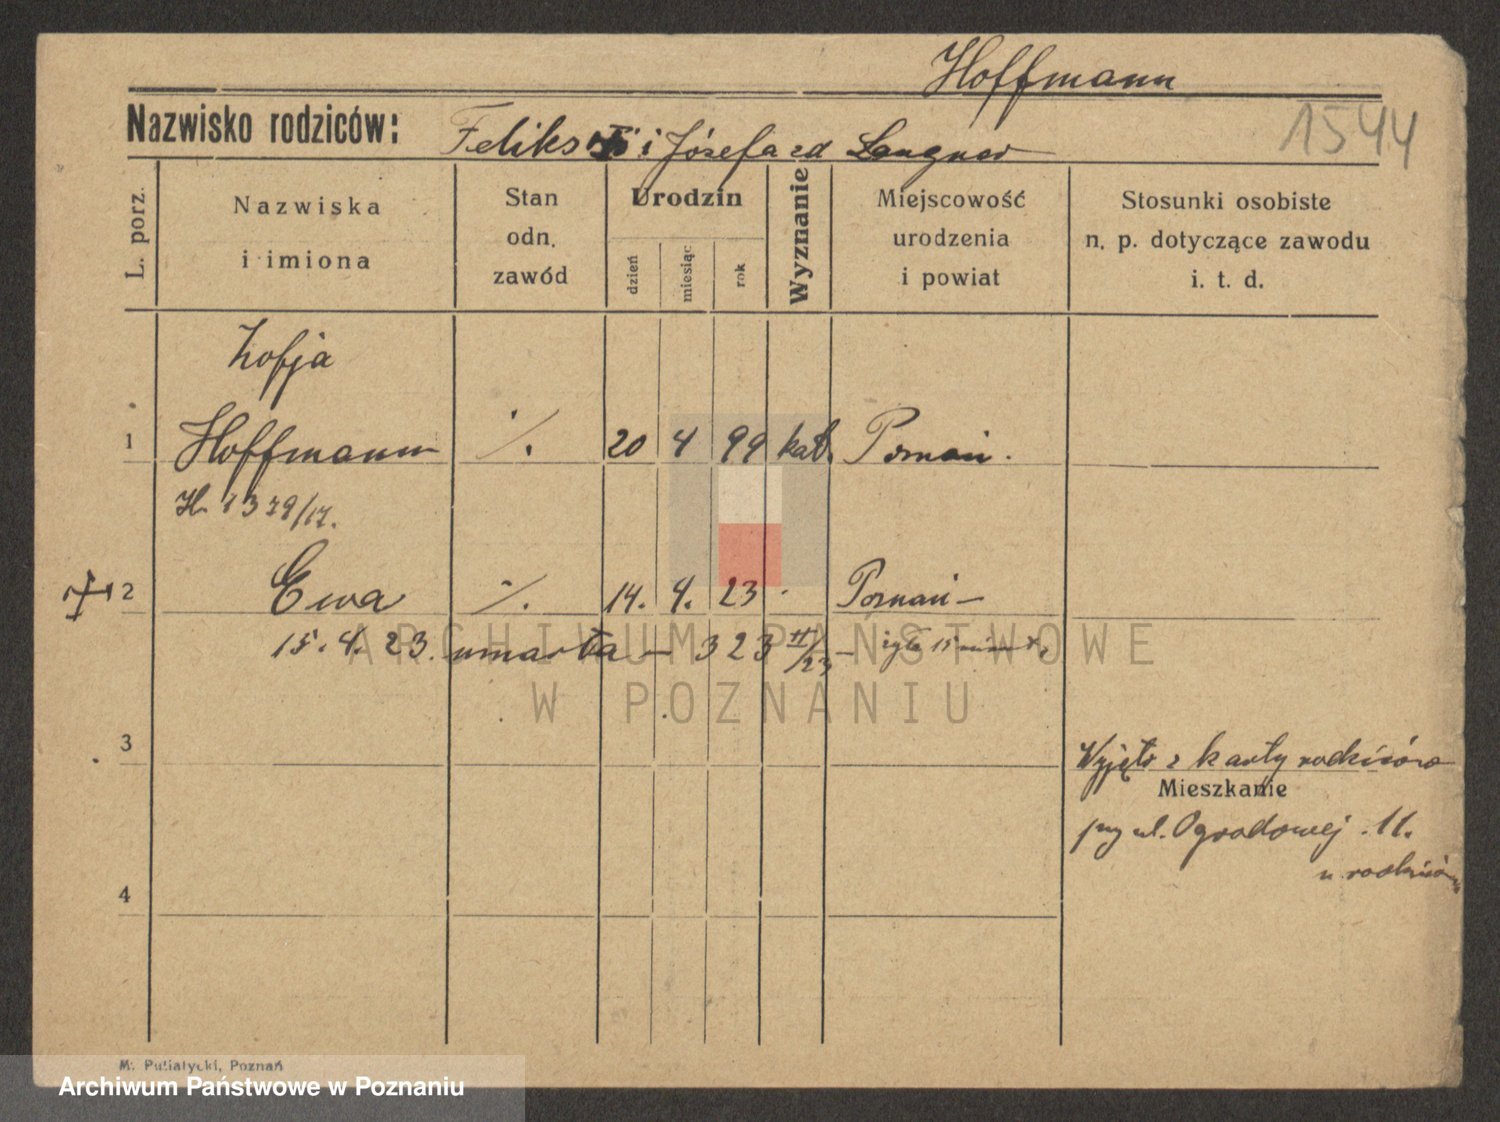 Hoffmann
Nazwisko rodziców: Feliks i Józefa zd Langner
1544
L. porz.
Nazwiska i imiona
Stan odn. zawód
Urodzin
dzień miesiąc rok
Wyznanie
Miejscowość urodzenia i powiat
Stosunki osobiste n. p. dotyczące zawodu i. t. d.
Zofja
1 Hoffmann ./. 20 4 99 kat. Poznań.
H. 1379/17.
2 Ewa ./. 14. 4. 23 Poznań –
15. 4. 23. umarła – 323 II/23 – żyła 15 minut
ARCHIWUM PAŃSTWOWE
W POZNANIU
3
Wyjęto z karty rodziców
Mieszkanie
przy ul. Ogrodowej 11.
u rodziców
4
M. Putiatycki, Poznań
Archiwum Państwowe w Poznaniu